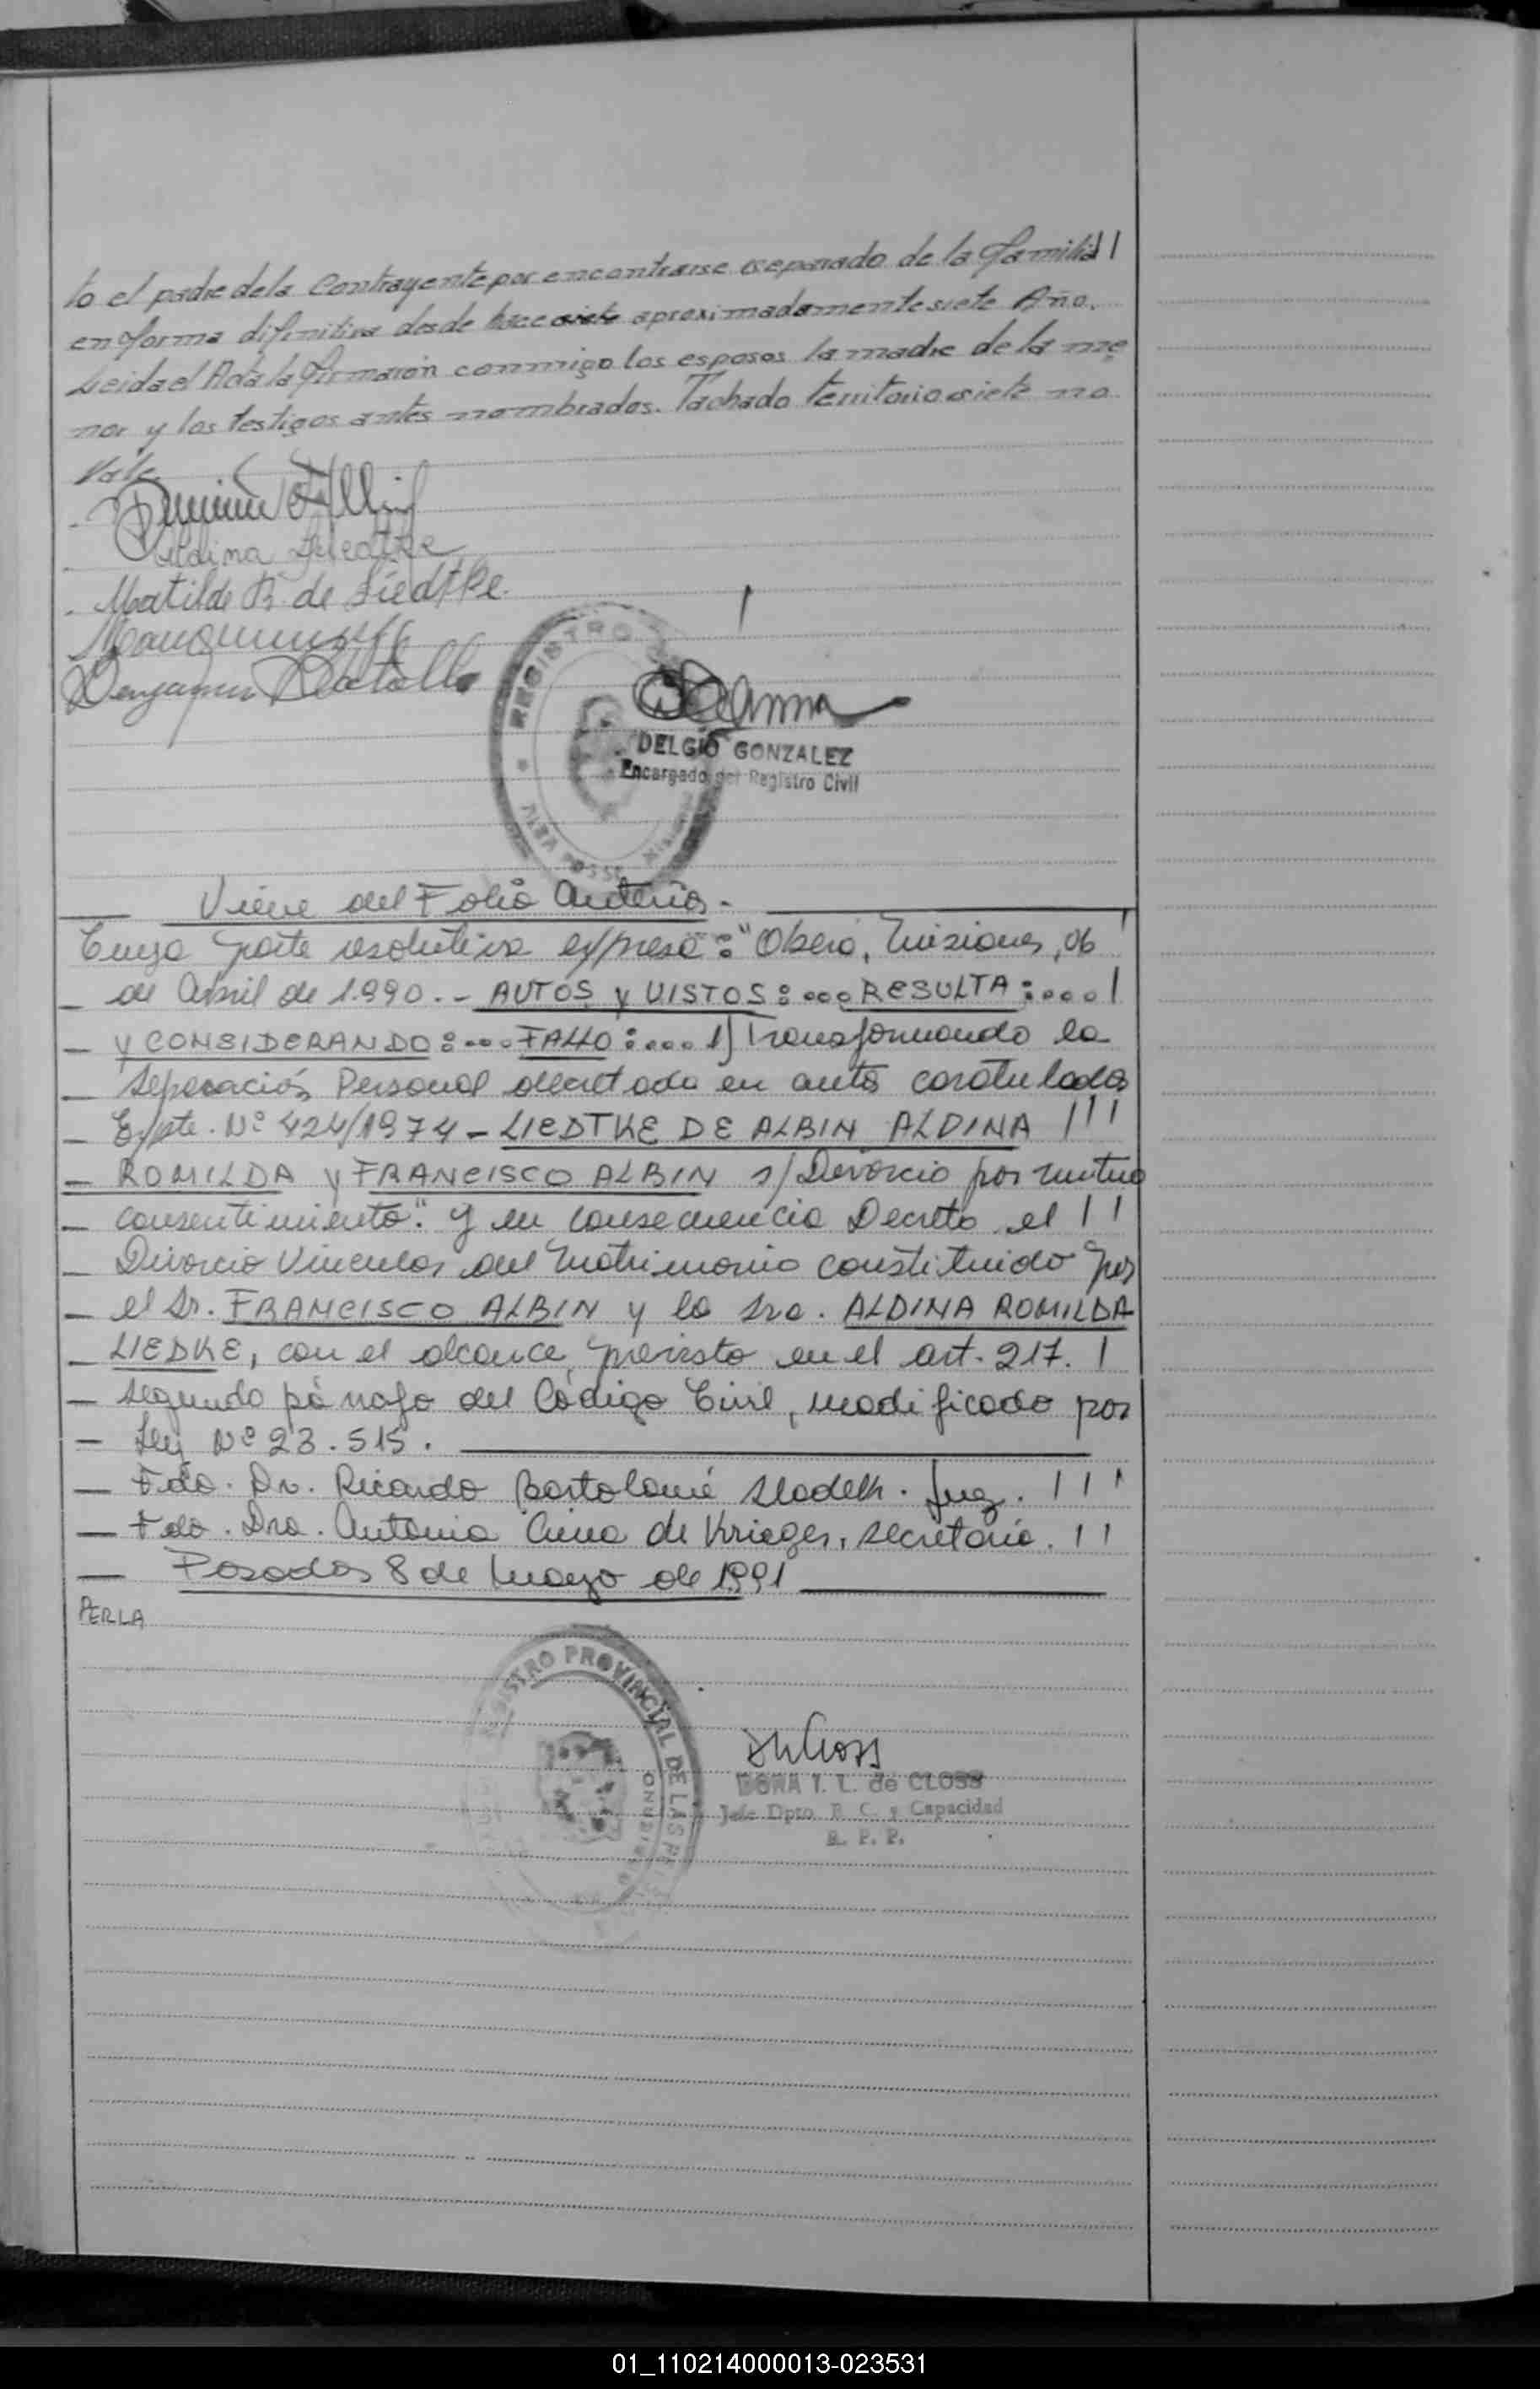 to el padre de la Contrayente por encontrarse separado de la familia
en forma difinitiva desde hace siete aproximadamente siete Año.
Leida el Acta la firmarón conmigo los esposos la madre de la me
nor y los testigos antes nombrados. Tachado territorio siete no
Vale.
Aldina Liedtke
Matilde B. de Liedtke.
REGISTRO
DELGIO GONZALEZ
Encargado del Registro Civil
Viene del Folio Anterior.-
Cuya parte resolutiva expresa: "Oberá, Misiones, 06
de Abril de 1.990.- AUTOS y VISTOS:... RESULTA:....
y CONSIDERANDO:... FALLO:.... 1) Transformando la
Separación Personal decretada en autos caratulados
Expte. Nº 424/1974 - LIEDTKE DE ALBIN ALDINA
ROMILDA y FRANCISCO ALBIN s/ Divorcio por mutuo
consentimiento". y en consecuencia Decreto el
Divorcio Vincular del Matrimonio constituido por
el Sr. FRANCISCO ALBIN y la Sra. ALDINA ROMILDA
LIEDKE, con el alcance previsto en el art. 217.
segundo párrafo del Código Civil, modificado por
Ley Nº 23.515.
Fdo. Dr. Ricardo Bartolomé. Juez.
Fdo. Dra. Antonia de Krieger, Secretaria.
Posadas 8 de Mayo de 1991
PERLA
REGISTRO PROVINCIAL DE LAS
DORA T. L. de CLOSS
Jefe Dpto. R. C. y Capacidad
R. P. P.
01_110214000013-023531